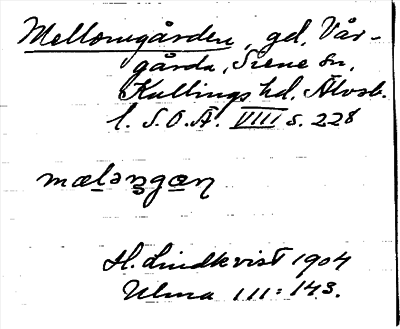 Mellomgården, gd, Vår-
gårda, Siene sn,
Kullings hd. Älvsb.
l. S.O.Ä. VIII s. 228
mælangɑn
H. Lindkvist 1904
Ulma 111:143.